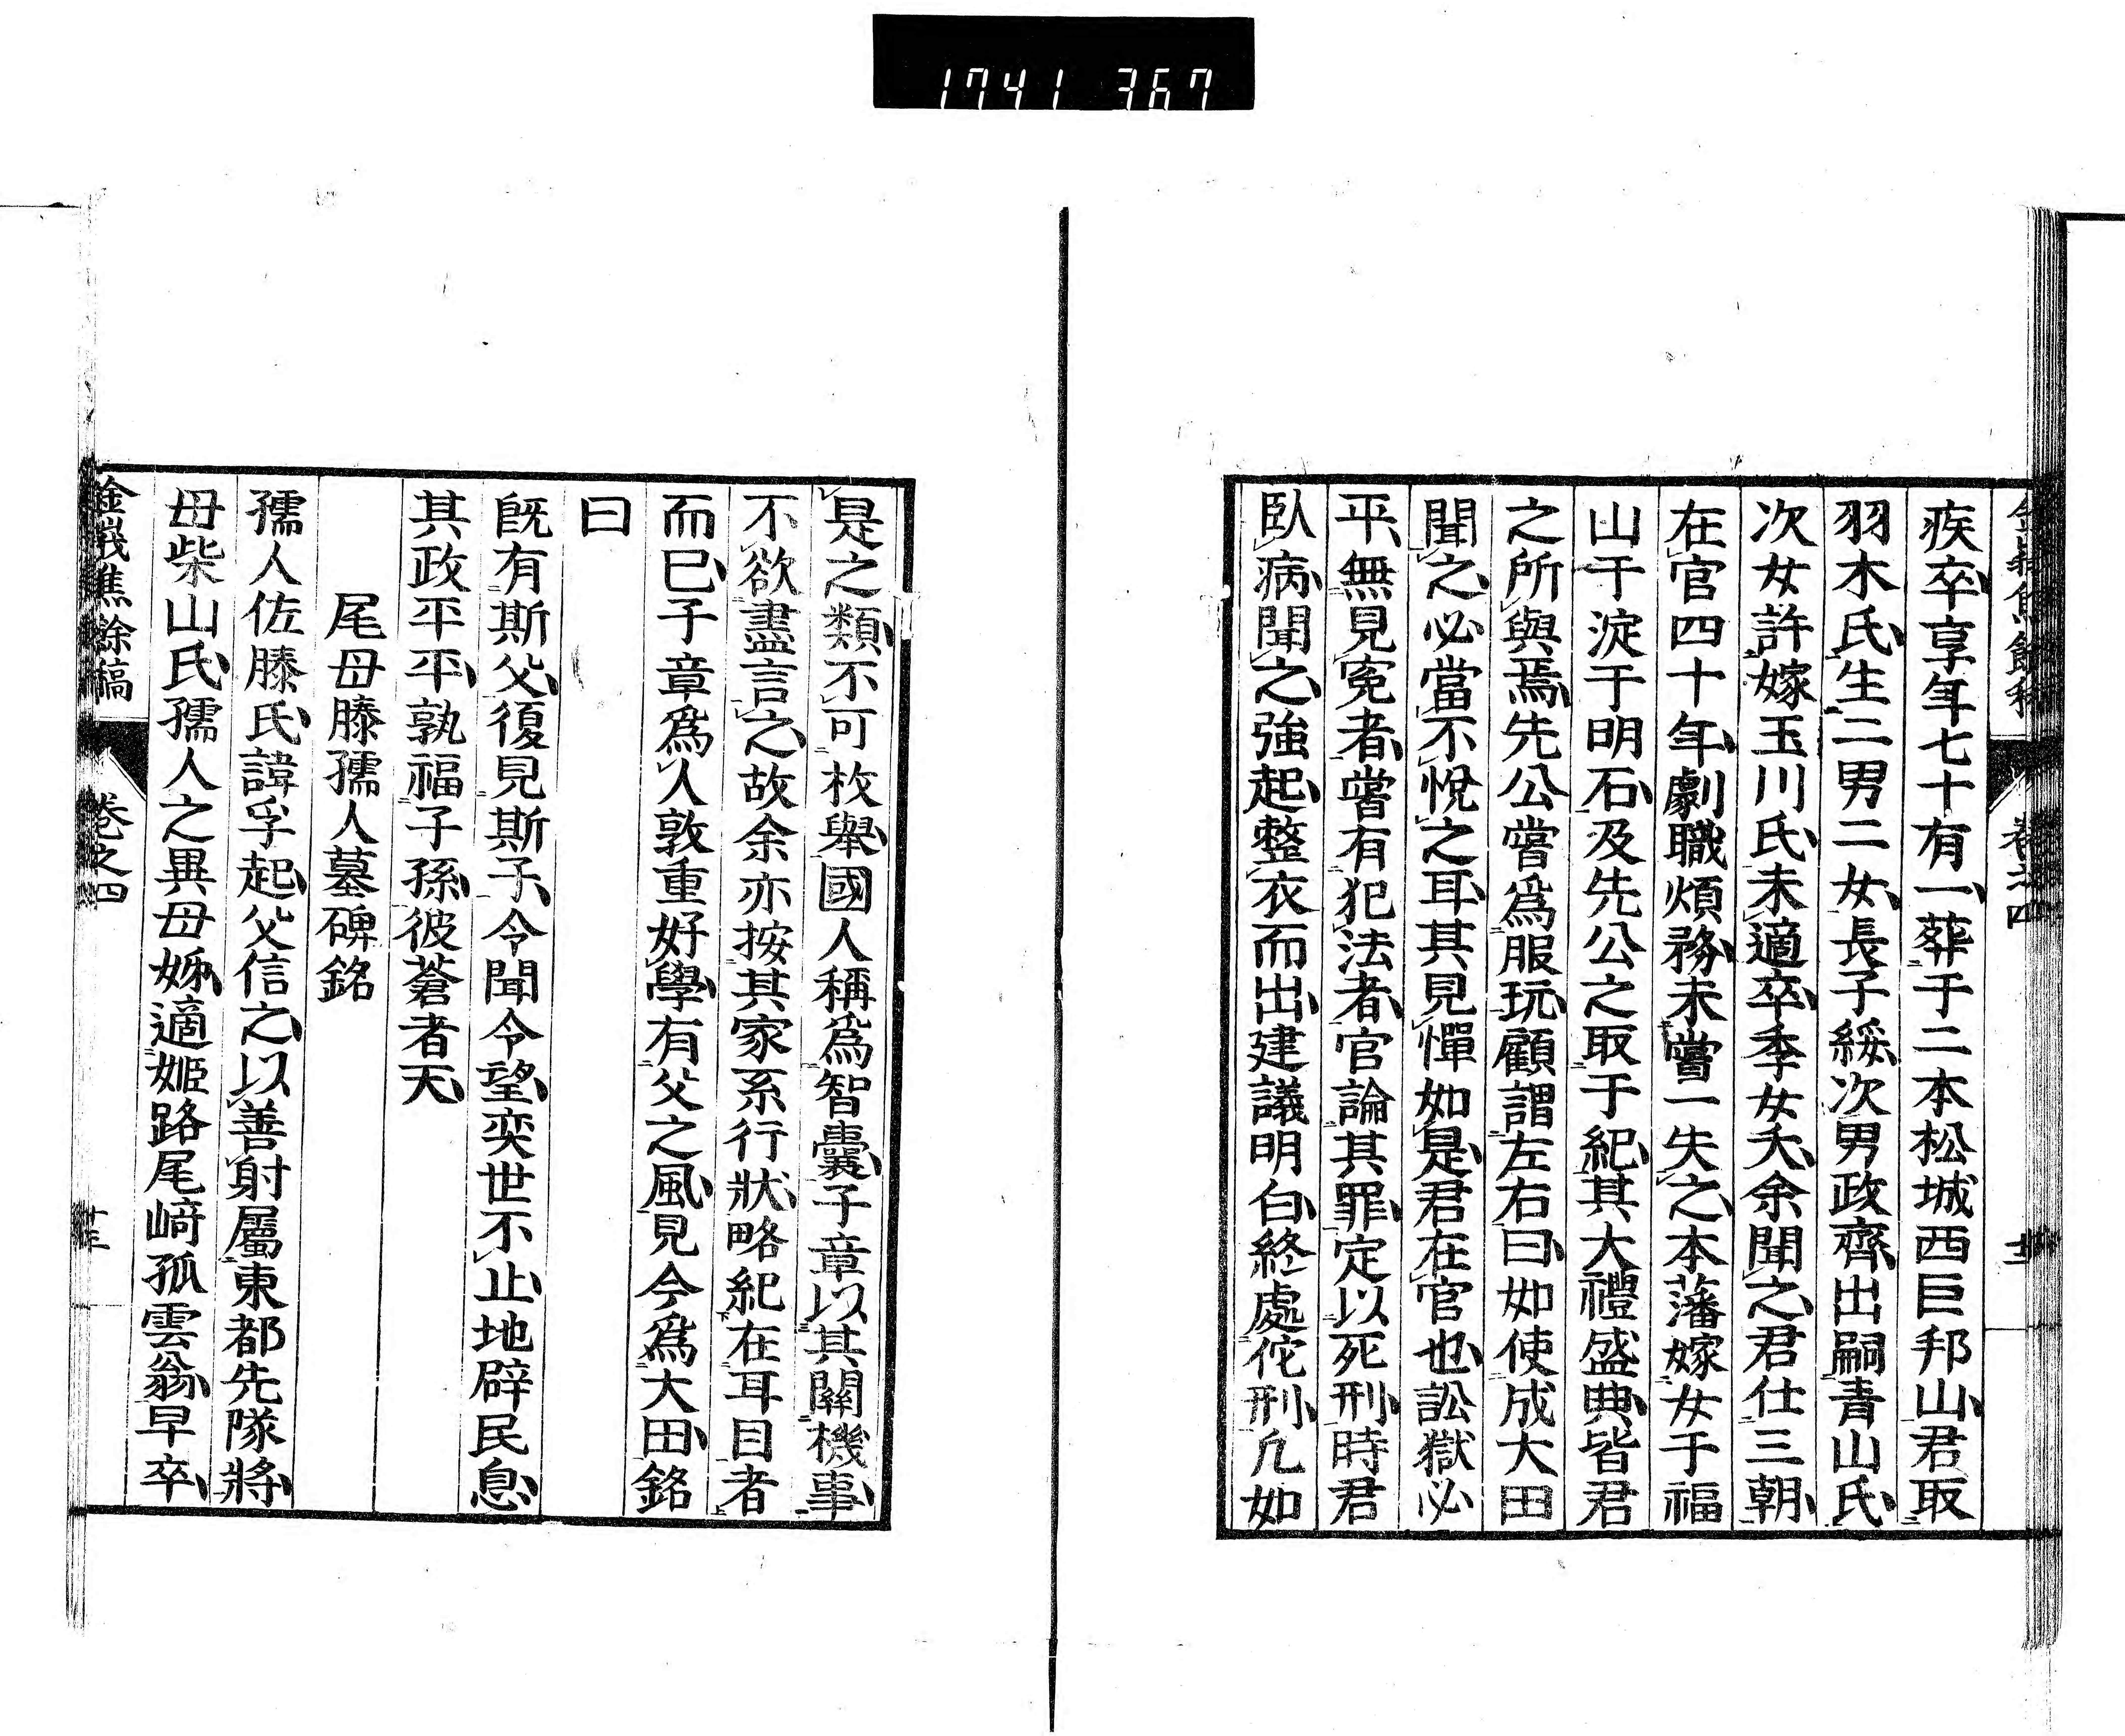 1741 367
疾卒享年七十有一葬于二本松城西巨邦山君取
羽木氏生二男二女長子綏次男政齊出嗣青山氏
次女許嫁玉川氏未適卒季女夭余聞之君仕三朝
在官四十年劇職煩務未嘗一失之本藩嫁女于福
山于淀于明石及先公之取于紀其大禮盛典皆君
之所與焉先公嘗爲服玩顧謂左右曰如使成大田
聞之必當不悅之耳其見憚如是君在官也訟獄必
平無見寃者嘗有犯法者官論其罪定以死刑時君
臥病聞之強起整衣而出建議明白終處佗刑凡如
是之類不可枚舉國人稱爲智囊子章以其關機事
不欲盡言之故余亦按其家系行狀略紀在耳目者
而已子章爲人敦重好學有父之風見今爲大田銘
曰
旣有斯父復見斯子令聞令望奕世不止地辟民息
其政平平孰福子孫彼蒼者天
尾母滕孺人墓碑銘
孺人佐滕氏諱孚起父信之以善射屬東都先隊將
母柴山氏孺人之異母姊適姬路尾﨑孤雲翁早卒
金峩焦餘稿 卷之四 廿三